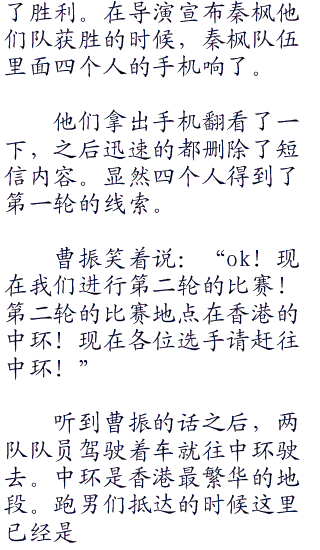 了胜利。在导演宣布秦枫他
们队获胜的时候，秦枫队伍
里面四个人的手机响了。
他们拿出手机翻看了一
下，之后迅速的都删除了短
信内容。显然四个人得到了
第一轮的线索。
曹振笑着说：“ok！现
在我们进行第二轮的比赛！
第二轮的比赛地点在香港的
中环！现在各位选手请赶往
中环！”
听到曹振的话之后，两
队队员驾驶着车就往中环驶
去。中环是香港最繁华的地
段。跑男们抵达的时候这里
已经是